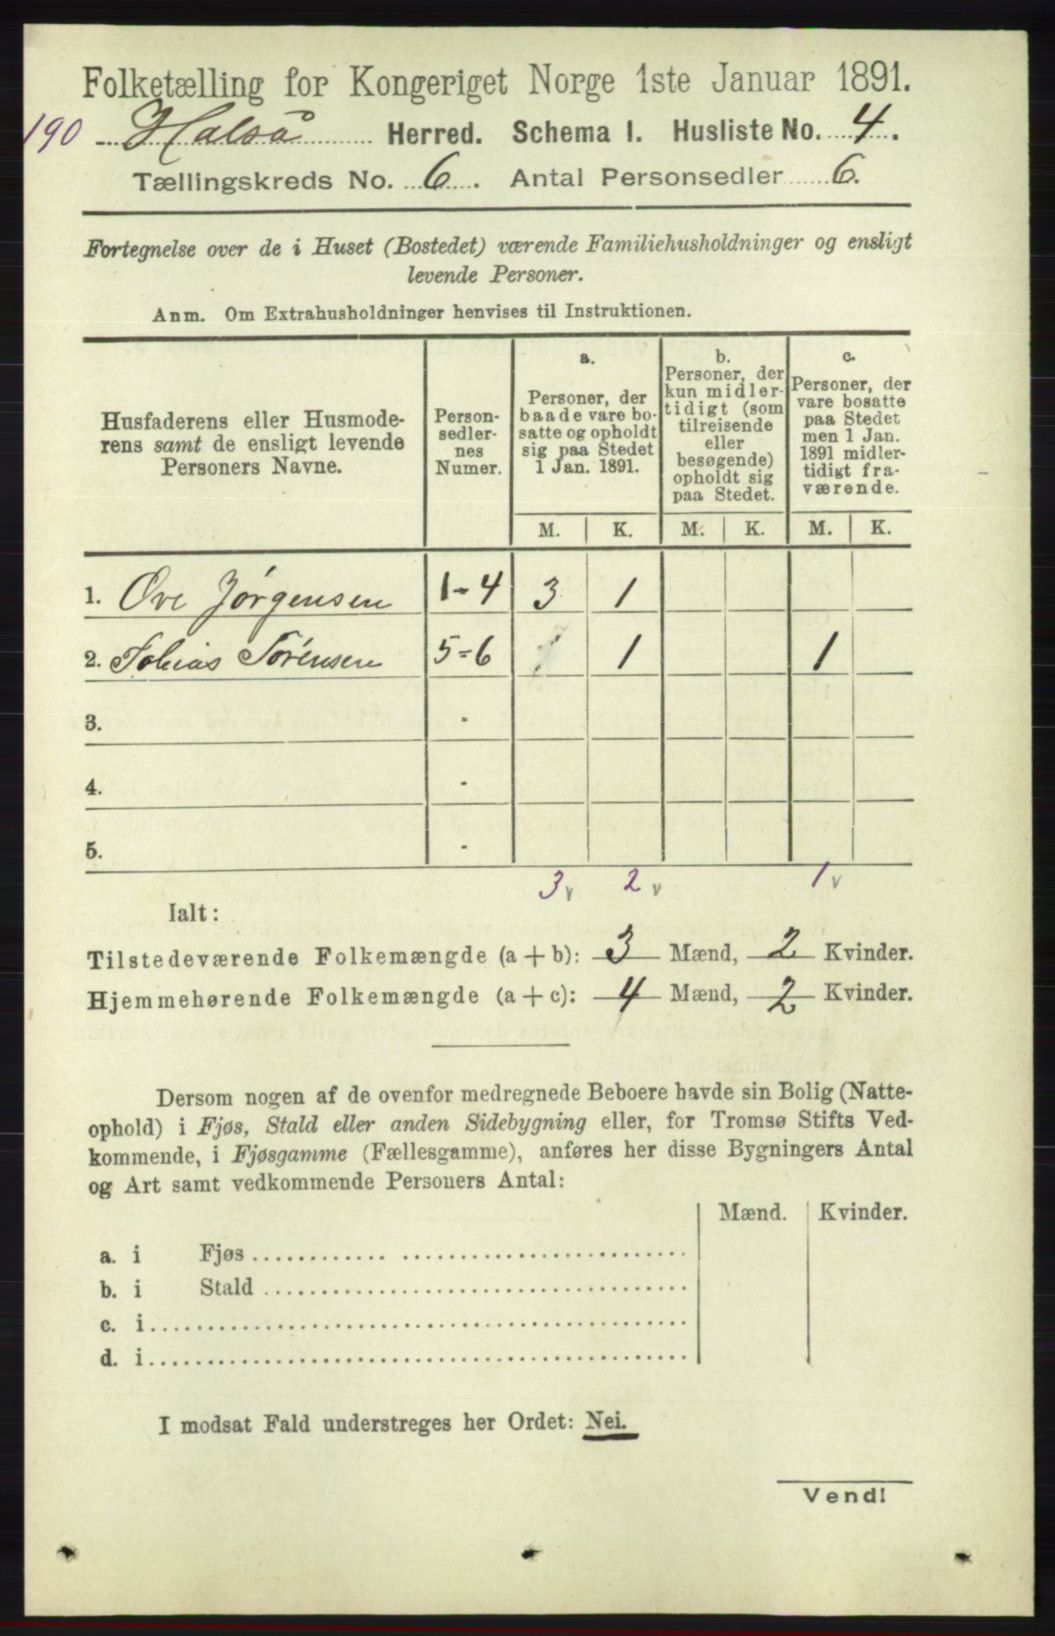 Folketælling for Kongeriget Norge 1ste Januar 1891.
190 Halså Herred. Schema I. Husliste No. 4.
Tællingskreds No. 6. Antal Personsedler 6.
Fortegnelse over de i Huset (Bostedet) værende Familiehusholdninger og ensligt
levende Personer.
Anm. Om Extrahusholdninger henvises til Instruktionen.
Husfaderens eller Husmode-
rens samt de ensligt levende
Personers Navne.
Person-
sedler-
nes
Numer.
a.
Personer, der
baade vare bo-
satte og opholdt
sig paa Stedet
1 Jan. 1891.
b.
Personer, der
kun midler-
tidigt (som
tilreisende
eller
besøgende)
opholdt sig
paa Stedet.
c.
Personer, der
vare bosatte
paa Stedet
men 1 Jan.
1891 midler-
tidigt fra-
værende.
M. K. M. K. M. K.
1. Ove Jørgensen 1-4 3 1
2. Tobias Sørensen 5-6 1 1 1
3. -
4. -
5. -
3 v 2 v 1 v
Ialt:
Tilstedeværende Folkemængde (a + b): 3 Mænd, 2 Kvinder.
Hjemmehørende Folkemængde (a + c): 4 Mænd, 2 Kvinder.
Dersom nogen af de ovenfor medregnede Beboere havde sin Bolig (Natte-
ophold) i Fjøs, Stald eller anden Sidebygning eller, for Tromsø Stifts Ved-
kommende, i Fjøsgamme (Fællesgamme), anføres her disse Bygningers Antal
og Art samt vedkommende Personers Antal:
Mænd. Kvinder.
a. i Fjøs
b. i Stald
c. i
d. i
I modsat Fald understreges her Ordet: Nei.
Vend!